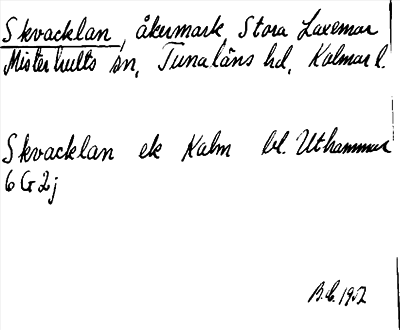 Skvacklan, åkermark, Stora Laxemar
Misterhults sn, Tunaläns hd, Kalmar l.
Skvacklan ek Kalm bl. Uthammar
6 G 2 j
1952